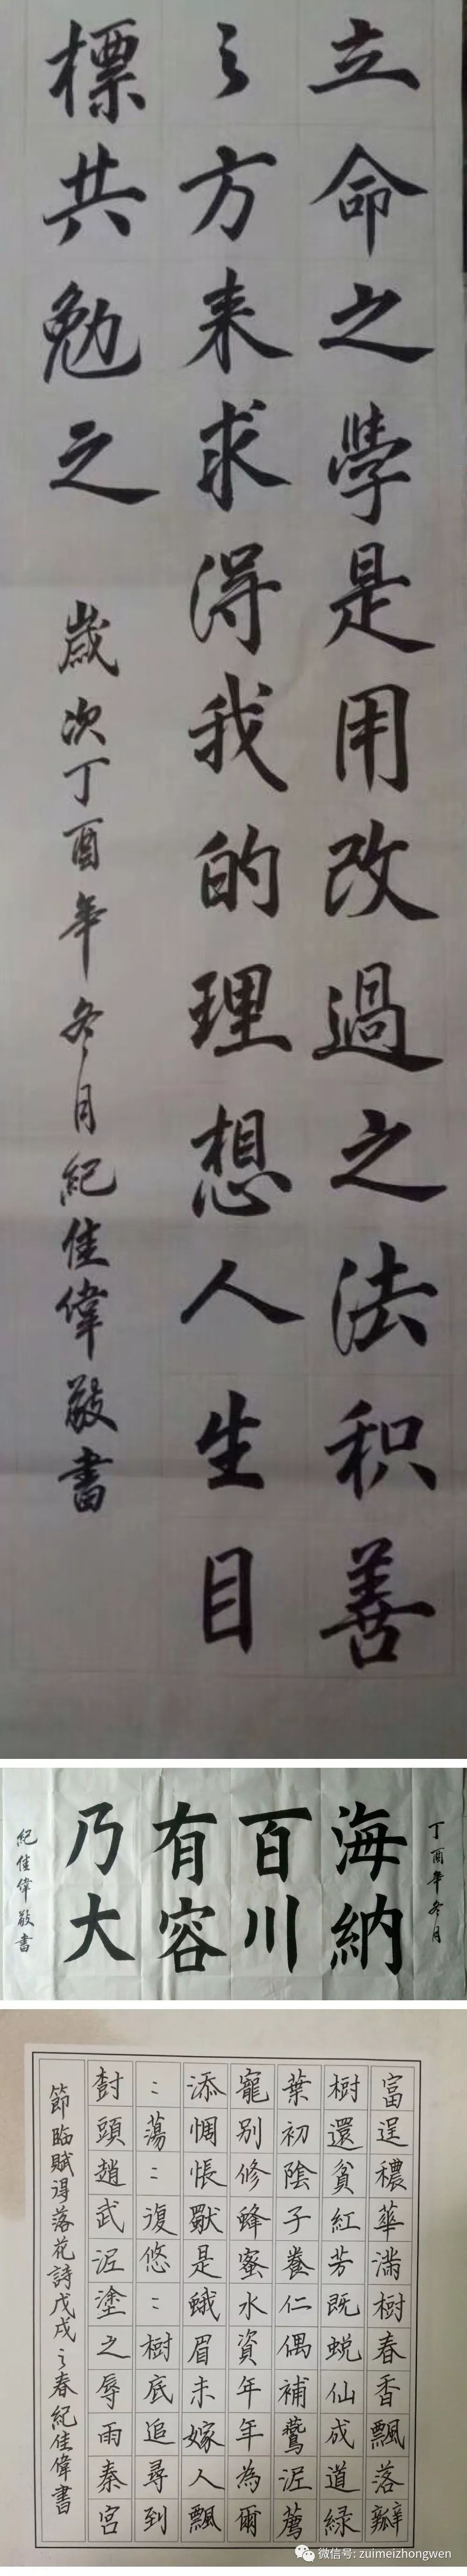 立命之學是用改過之法积善
之方来求得我的理想人生目
標共勉之
歲次丁酉年冬月紀佳偉敬書
丁酉年冬月
海納
百川
有容
乃大
紀佳偉敬書
富逞穠華滿樹春香飄落瓣
樹還貧紅芳既蛻仙成道綠
葉初陰子養仁偶補鶯泥蔫
寵別修蜂蜜水資年年為爾
添惆悵獸是蛾眉未嫁人飄
：蕩：復悠：樹底追尋到
樹頭趙武泥塗之辱雨秦宮
節臨賦得落花詩戊戌之春紀佳偉書
微信号: zuimeizhongwen